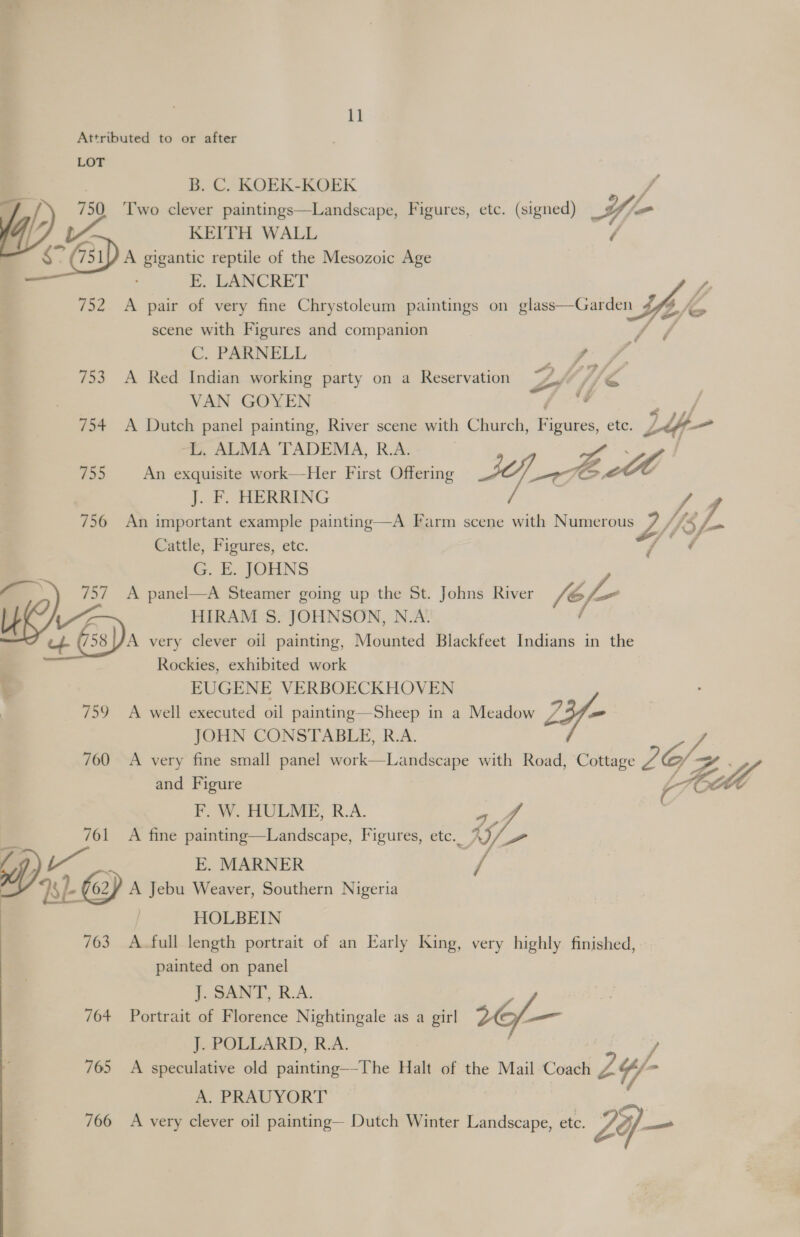 11
Attributed to or after
LOT
B. C. KOEK-KOEK
750 Two clever paintings—Landscape, Figures, etc. (signed)
KEITH WALL
751 A gigantic reptile of the Mesozoic Age
E. LANCRET
752 A pair of very fine Chrystoleum paintings on glass—Garden
scene with Figures and companion
C. PARNELL
753 A Red Indian working party on a Reservation
VAN GOYEN
754 A Dutch panel painting, River scene with Church, Figures, etc.
L. ALMA TADEMA, R.A.
755 An exquisite work—Her First Offering
J. F. HERRING
756 An important example painting—A Farm scene with Numerous
Cattle, Figures, etc.
G. E. JOHNS
757 A panel—A Steamer going up the St. Johns River
HIRAM S. JOHNSON, N.A.
758 A very clever oil painting, Mounted Blackfeet Indians in the
Rockies, exhibited work
EUGENE VERBOECKHOVEN
759 A well executed oil painting—Sheep in a Meadow
JOHN CONSTABLE, R.A.
760 A very fine small panel work—Landscape with Road, Cottage
and Figure
F. W. HULME, R.A.
761 A fine painting—Landscape, Figures, etc.
E. MARNER
762 A Jebu Weaver, Southern Nigeria
HOLBEIN
763 A full length portrait of an Early King, very highly finished,
painted on panel
J. SANT, R.A.
764 Portrait of Florence Nightingale as a girl
J. POLLARD, R.A.
765 A speculative old painting—The Halt of the Mail Coach
A. PRAUYORT
766 A very clever oil painting— Dutch Winter Landscape, etc.